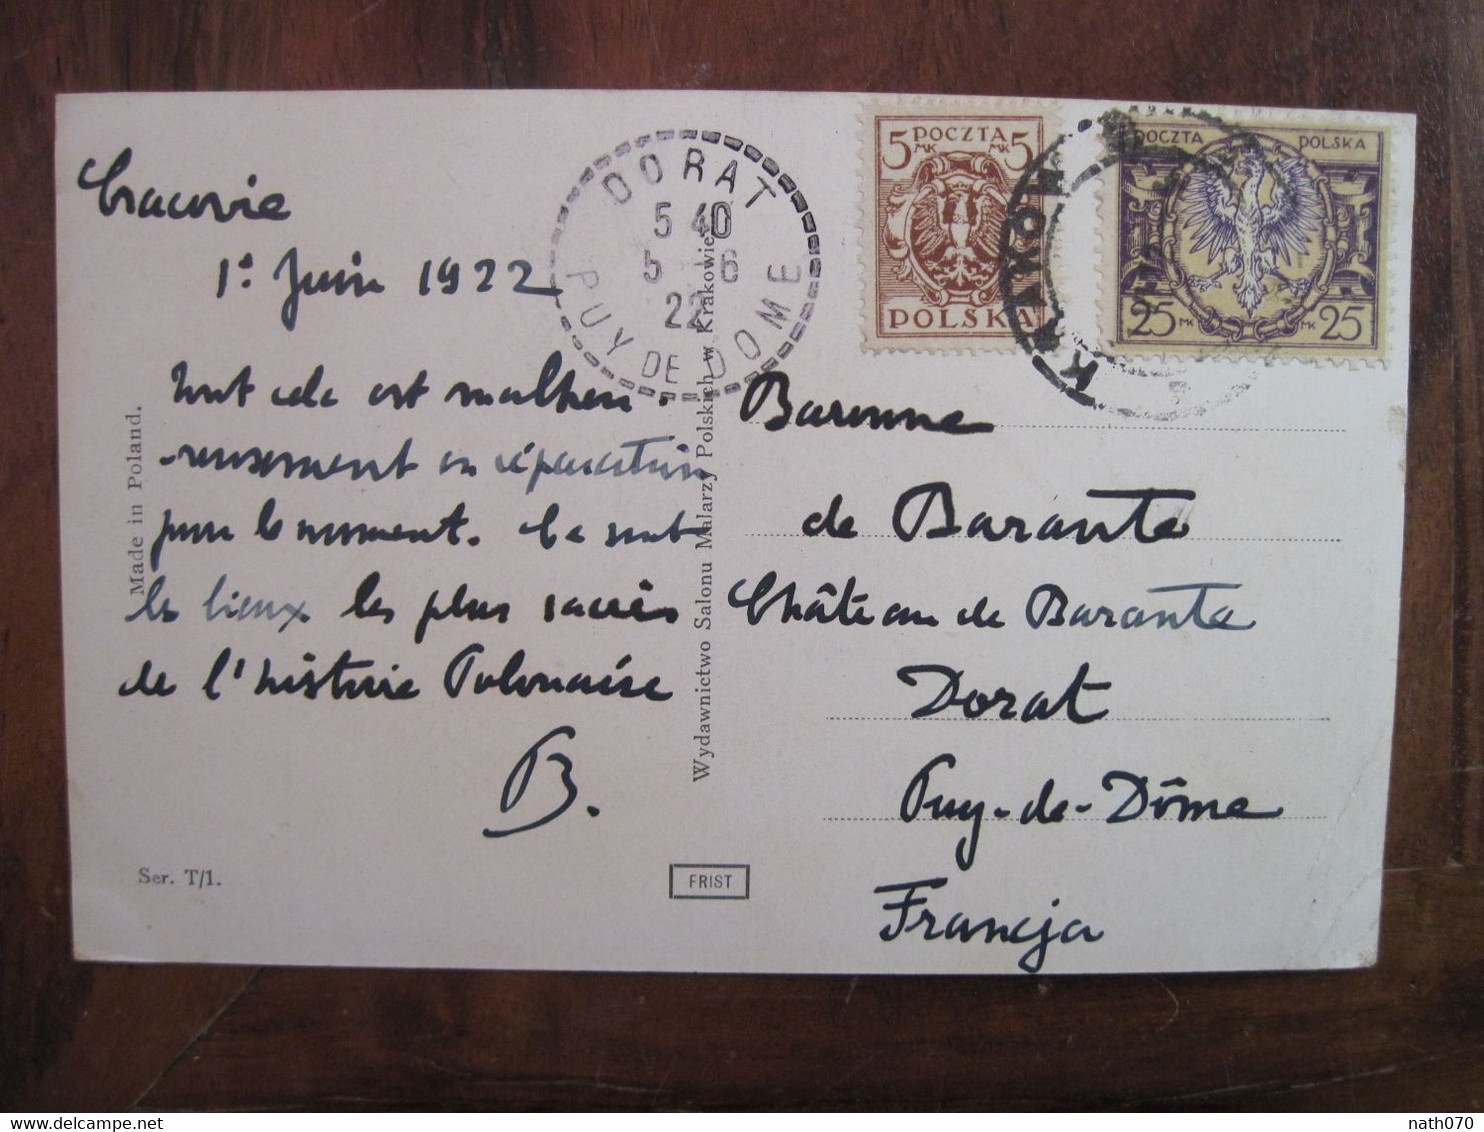 Cracovie
1er Juin 1922
Tout cela est malheu-
-reusement en réparation
pour le moment. Ce sont
les lieux les plus sacrés
de l'histoire Polonaise
B.
Made in Poland.
Ser. T/1.
DORAT
5 40
5 6
22
PUY DE DOME
Wydawnictwo Salonu Malarzy Polskich w Krakowie.
FRIST
5 POCZTA 5
MK MK
POLSKA
KRAKÓW
POCZTA POLSKA
25 MK MK 25
Baronne
de Barante
Château de Barante
Dorat
Puy-de-Dôme
Francja
delcampe.net
nath070